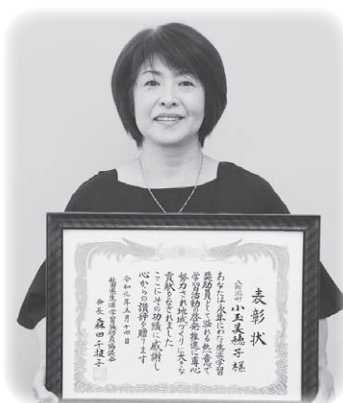 表彰状
小玉美穂子様
あなたは永年にわたり生涯学習
奨励員として溢れる熱意で
学習活動の啓発推進に専心
努力され地域づくりに大きな
貢献をなされました
ここにその功績に感謝し
心からの讃辞を贈ります
令和元年五月十四日
秋田県生涯学習奨励員協議会
会長 森田千技子